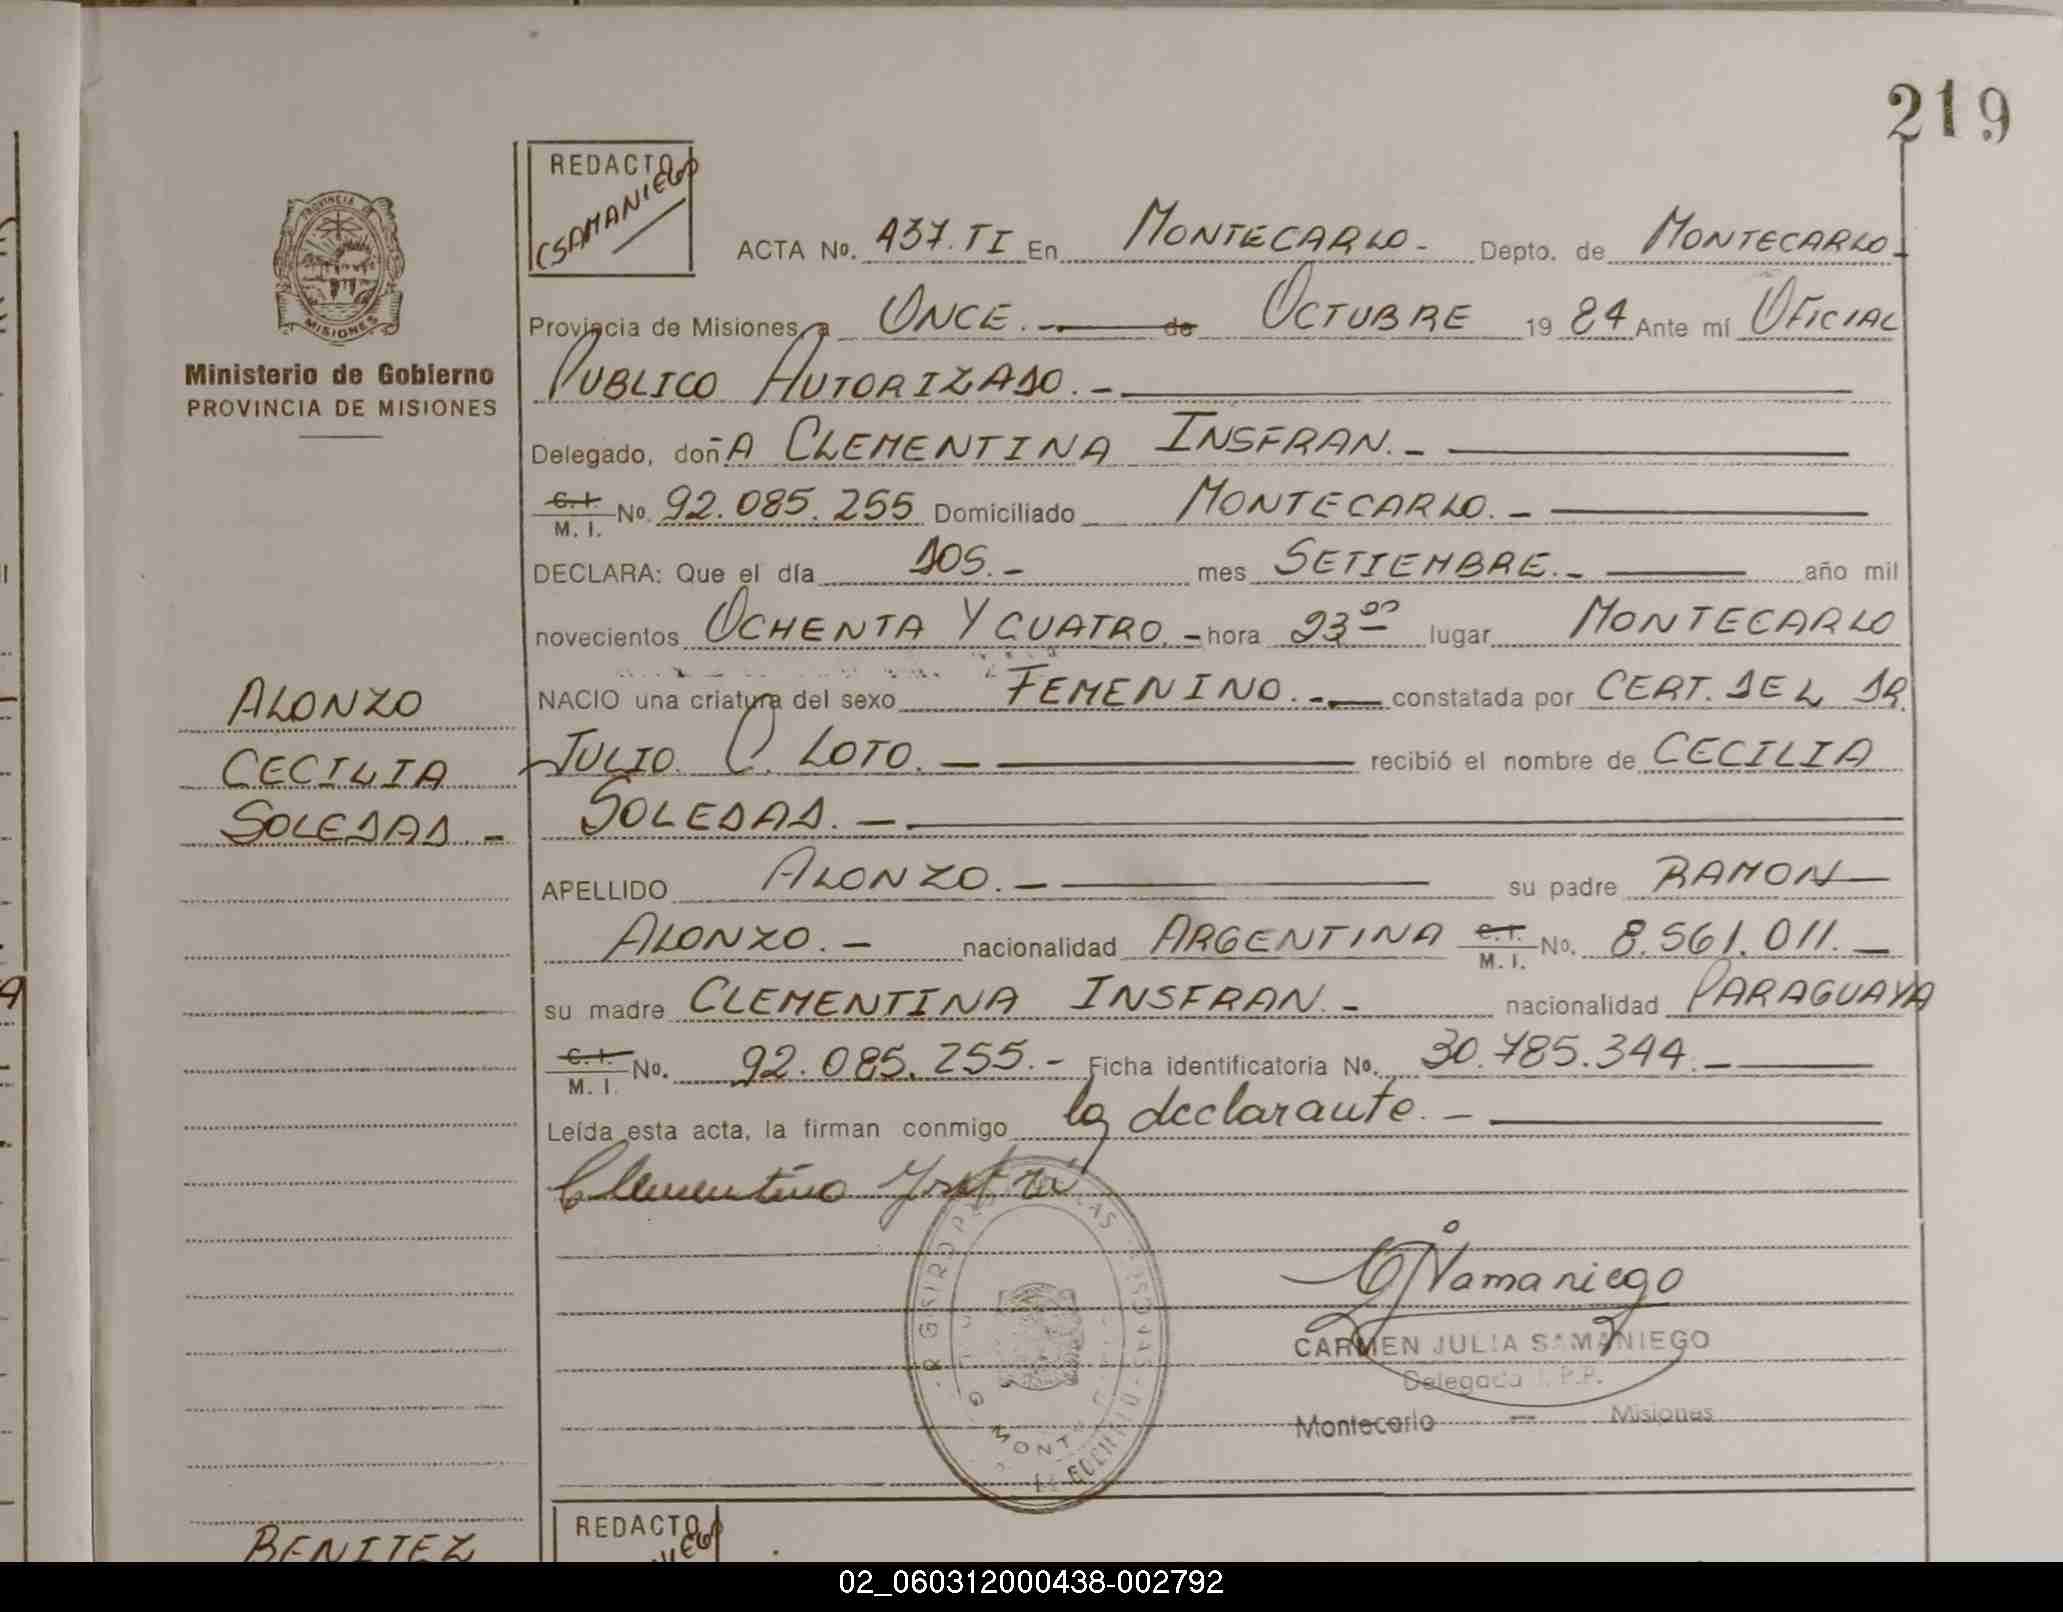 219
REDACTO
CSAMANIEGO
PROVINCIA DE
MISIONES
Ministerio de Gobierno
PROVINCIA DE MISIONES
ACTA No. 437. TI En MONTECARLO.- Depto. de MONTECARLO-
Provincia de Misiones, a ONCE.- de OCTUBRE 19 84 Ante mí OFICIAL
PUBLICO AUTORIZADO.-
Delegado, doñA CLEMENTINA INSFRAN.-
C. I. M. I. No. 92.085.255 Domiciliado MONTECARLO.-
DECLARA: Que el día DOS.- mes SETIEMBRE.- año mil
novecientos OCHENTA Y CUATRO.- hora 23 00 lugar MONTECARLO
NACIO una criatura del sexo FEMENINO.- constatada por CERT. DEL DR.
JULIO C. LOTO.- recibió el nombre de CECILIA
SOLEDAD.-
ALONZO
CECILIA
SOLEDAD.-
APELLIDO ALONZO.- su padre RAMON
ALONZO.- nacionalidad ARGENTINA C. I. M. I. No. 8.561.011.-
su madre CLEMENTINA INSFRAN.- nacionalidad PARAGUAYA
C. I. M. I. No. 92.085.255.- Ficha identificatoria No. 30.785.344.-
Leída esta acta, la firman conmigo la declarante.-
Clementina
CSamaniego
CARMEN JULIA SAMANIEGO
Delegada R.P.P.
Montecarlo - Misiones
REDACTO
BENITEZ
02_060312000438-002792